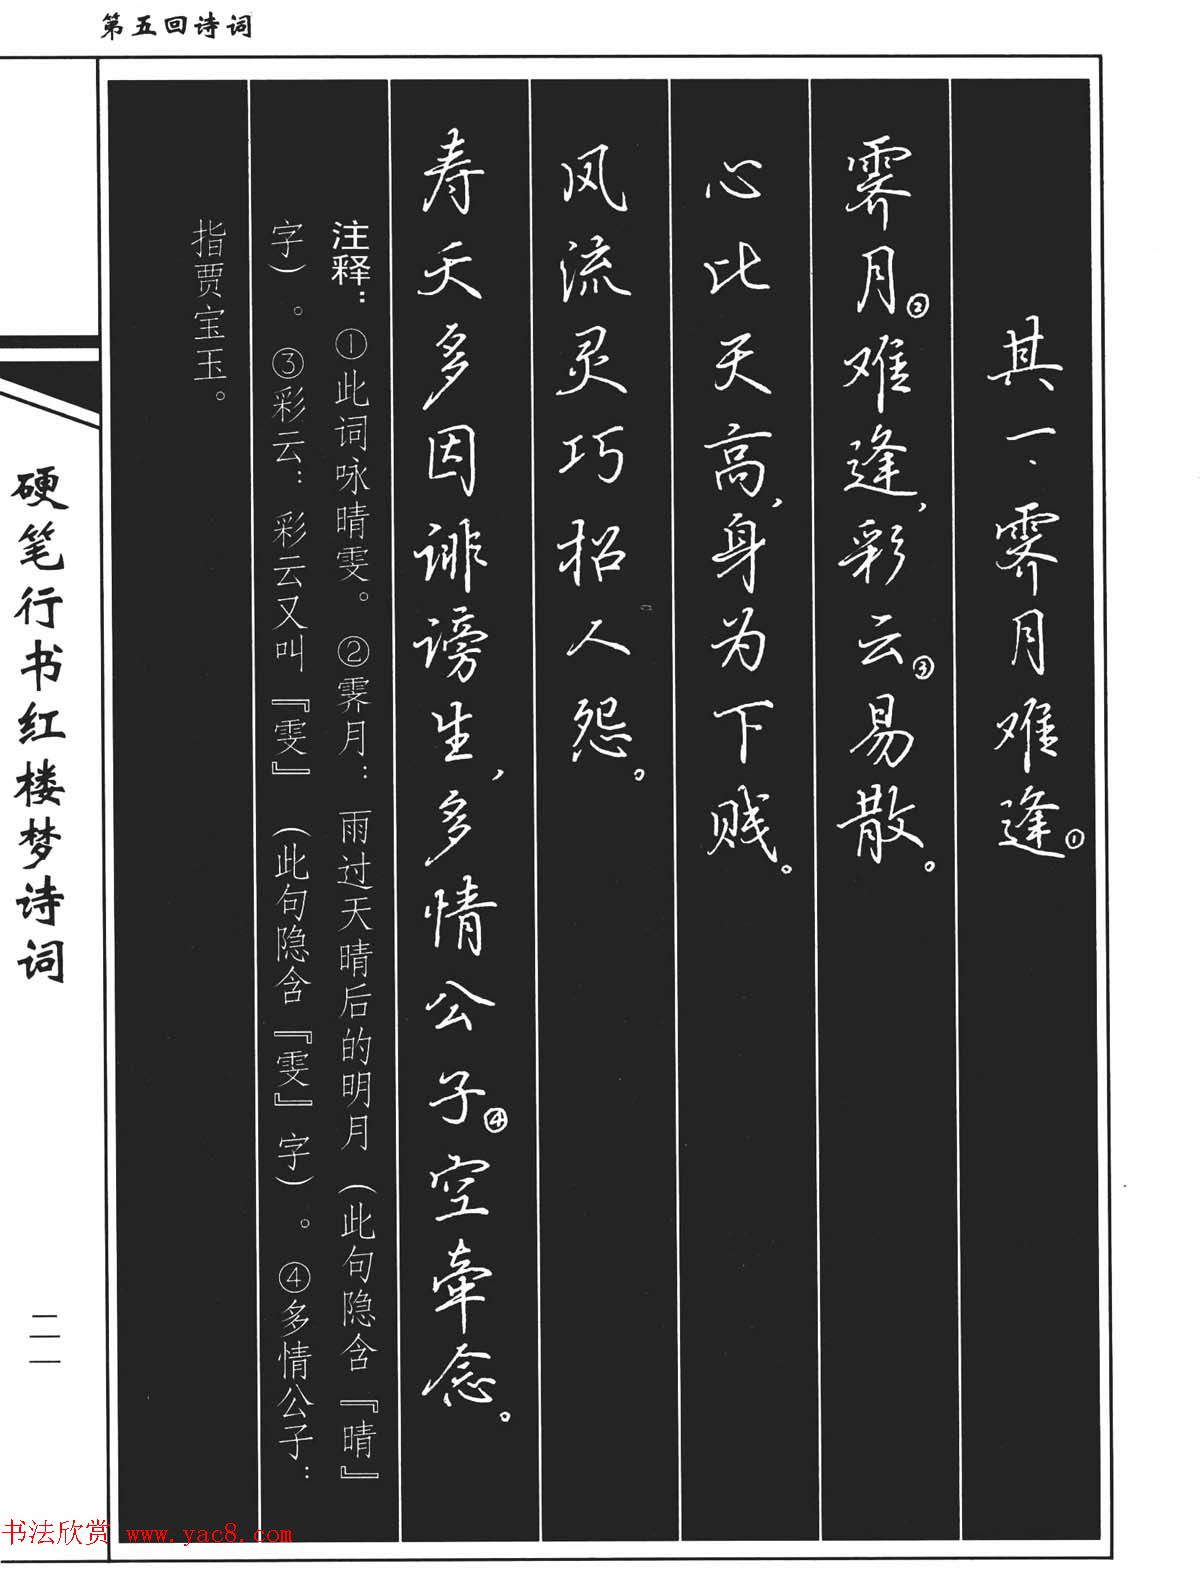 第五回诗词
其一、霁月难逢①
霁月②难逢，彩云③易散。
心比天高，身为下贱。
风流灵巧招人怨。
寿夭多因诽谤生，多情公子④空牵念。
注释：①此词咏晴雯。②霁月：雨过天晴后的明月（此句隐含『晴』
字）。③彩云：彩云又叫『雯』（此句隐含『雯』字）。④多情公子：
指贾宝玉。
硬笔行书红楼梦诗词
二一
书法欣赏 www.yac8.com